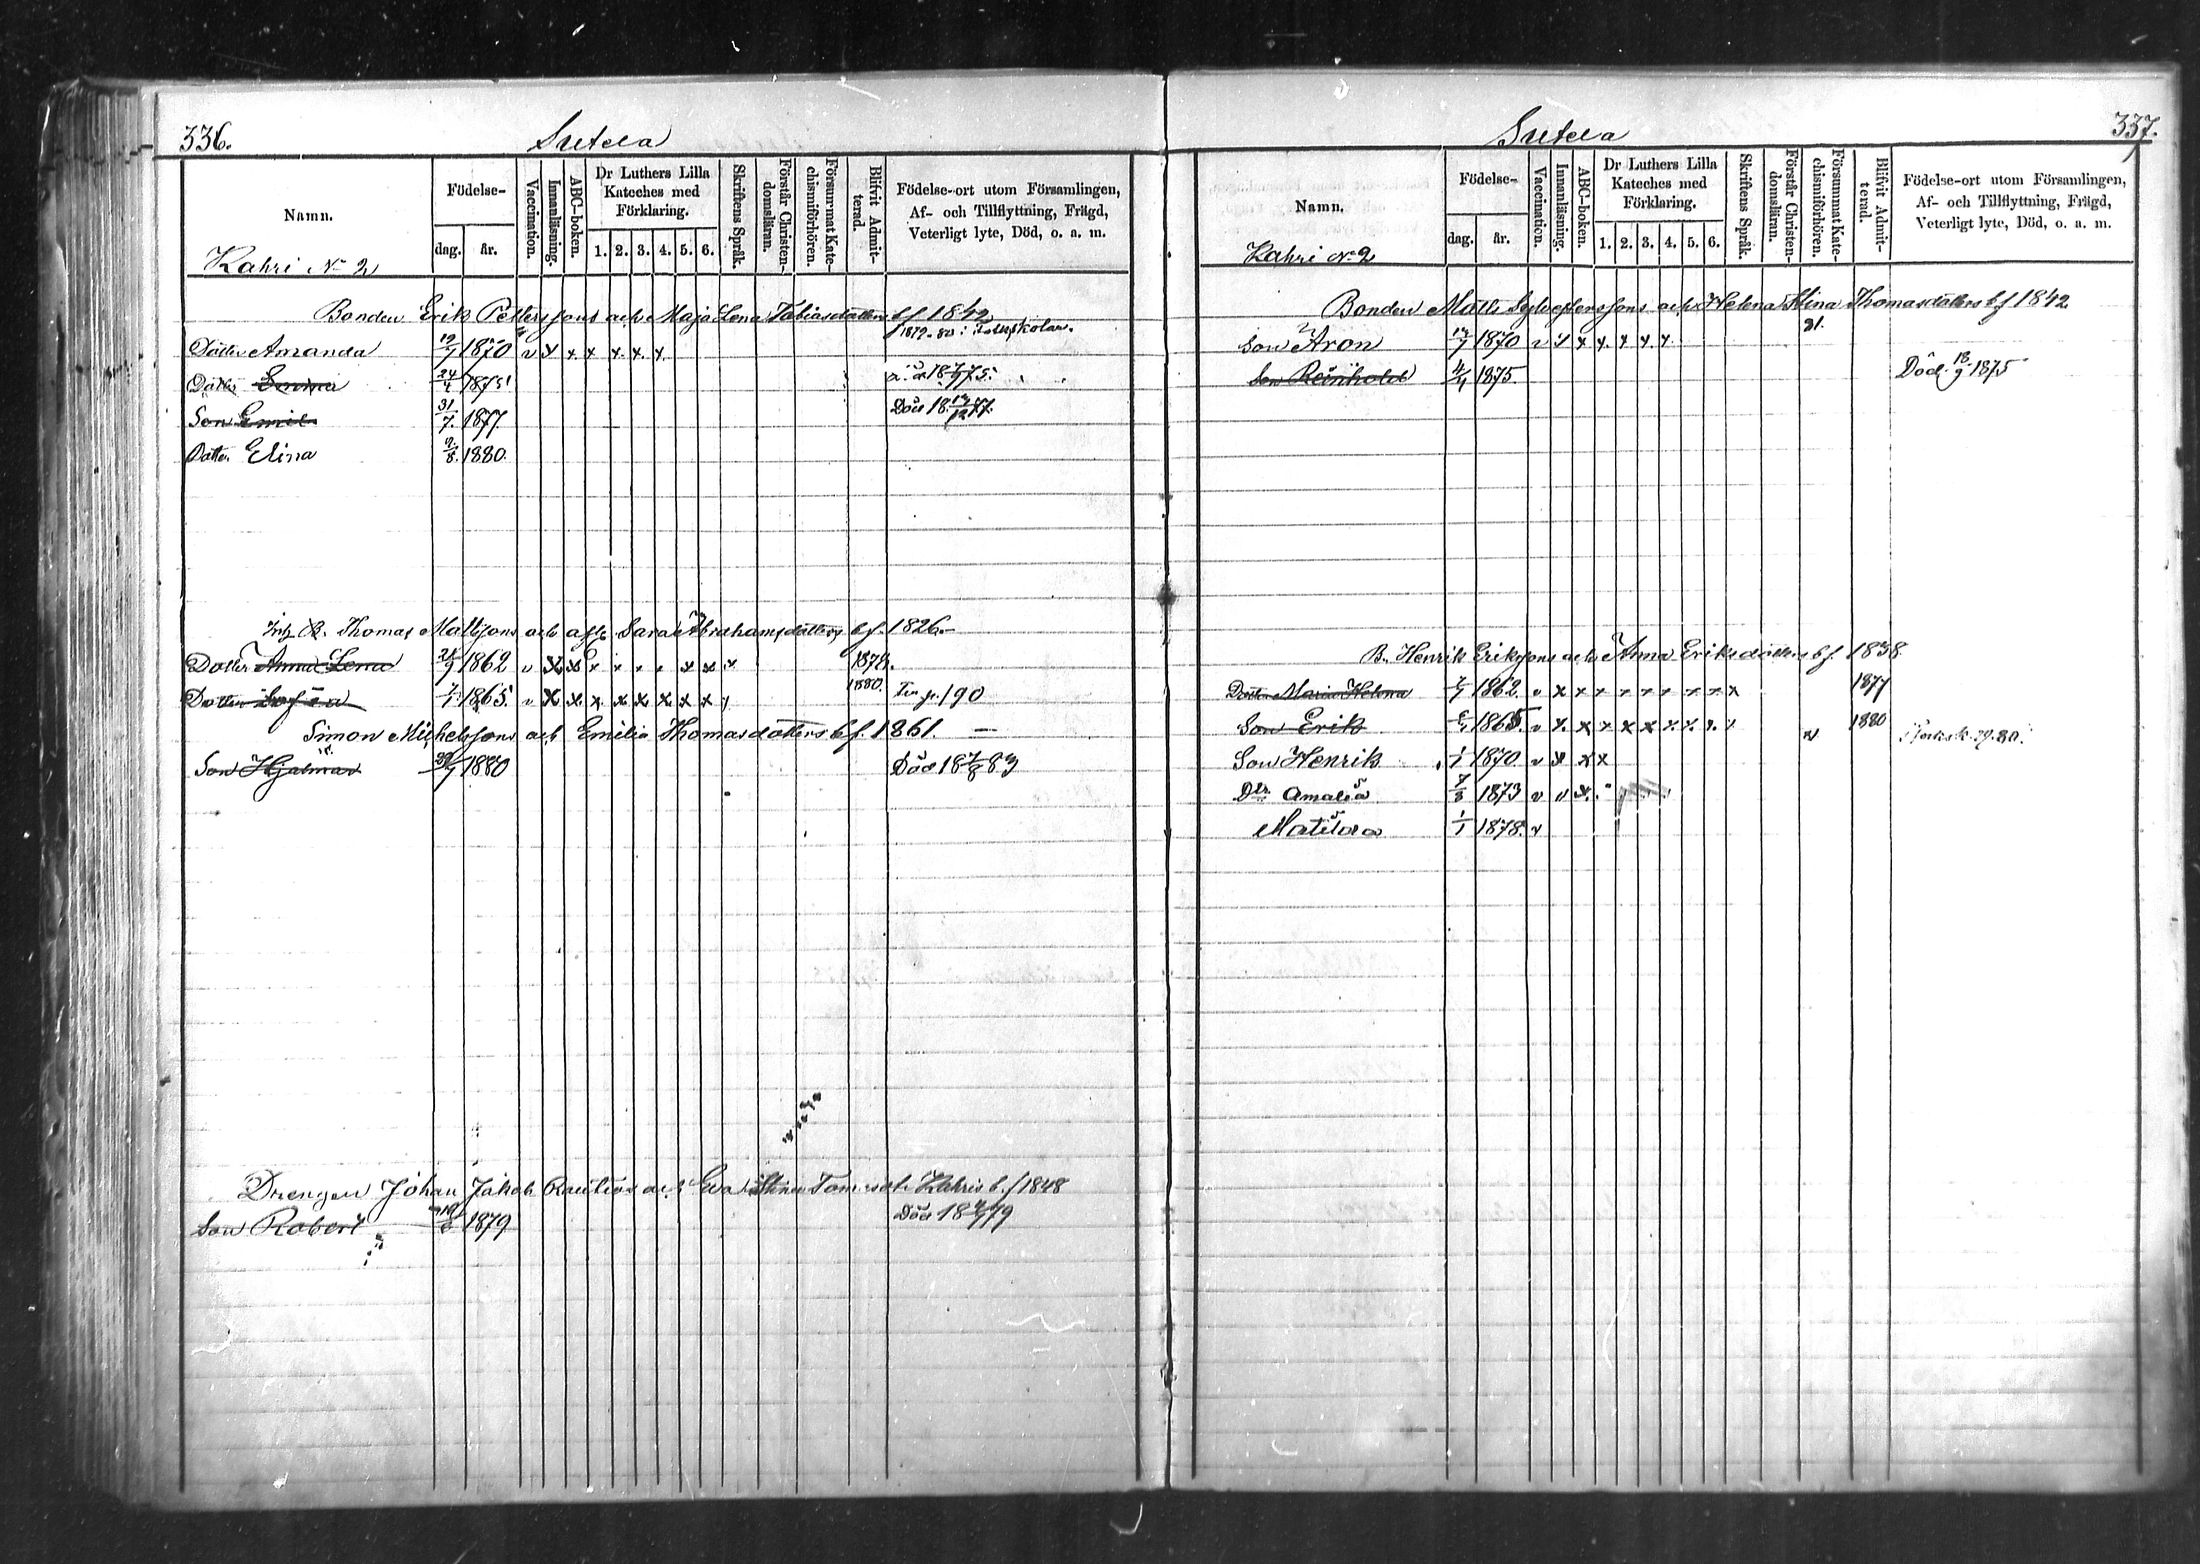 336.
Sutela
Namn.
Födelse-
dag.
år.
Vaccination.
Innanläsning.
ABC-boken.
Dr Luthers Lilla
Kateches med
Förklaring.
1. 2. 3. 4. 5. 6.
Skriftens Språk.
Förstår Christen-
domsläran.
Försummat Kate-
chismiförhören.
Blifvit Admit-
terad.
Födelse-ort utom Församlingen,
Af- och Tillflyttning, Frägd,
Veterligt lyte, Död, o. a. m.
Kahri No 2
Bonden Erik Petterssons och Maja Lena Tobiasdotters bf 1842
1879-80 i
Dotter Amanda 1870 v x x x x x x
Dotter 24/4 1875
Son Emil 31/7. 1877 Död 18 77.
Dotter Elina 2/8. 1880.
B. Thomas Mattssons och Sara Abrahamsdotters bf. 1826.
Dotter Anna Lena 1862 v x x x x x x x x x 1878.
Dotter Sofia 1865. v x x x x x x x x 1880. p. 190
Simon Michelssons och Emilia Thomasdotters bf. 1861. —
Son Hjalmar 1880 Död 18 7/8 83
Drengen Johan Jakob Rautios och Eva Stina Kahris bf 1848
Son Robert 1879 Död 18 79
337.
Sutela
Namn.
Födelse-
dag.
år.
Vaccination.
Innanläsning.
ABC-boken.
Dr Luthers Lilla
Kateches med
Förklaring.
1. 2. 3. 4. 5. 6.
Skriftens Språk.
Förstår Christen-
domsläran.
Försummat Kate-
chismiförhören.
Blifvit Admit-
terad.
Födelse-ort utom Församlingen,
Af- och Tillflyttning, Frägd,
Veterligt lyte, Död, o. a. m.
Kahri No 2
Bonden Matts Sylvesterssons och Helena Stina Thomasdotters bf 1842
Son Aron 1870 v x x x x x x 81.
Son Reinhold 1875. Död. 18/9 1875
B. Henrik Erikssons och Anna Eriksdotters bf. 1838
Dotter Maria Helena 1862. v x x x x x x x x x 1877
Son Erik 1865. v x x x x x x x x x 1880
Son Henrik 1/1 1870 v x x x
Dr Amalia 7/8 1873 v v x
Matilda 1/1 1878. v